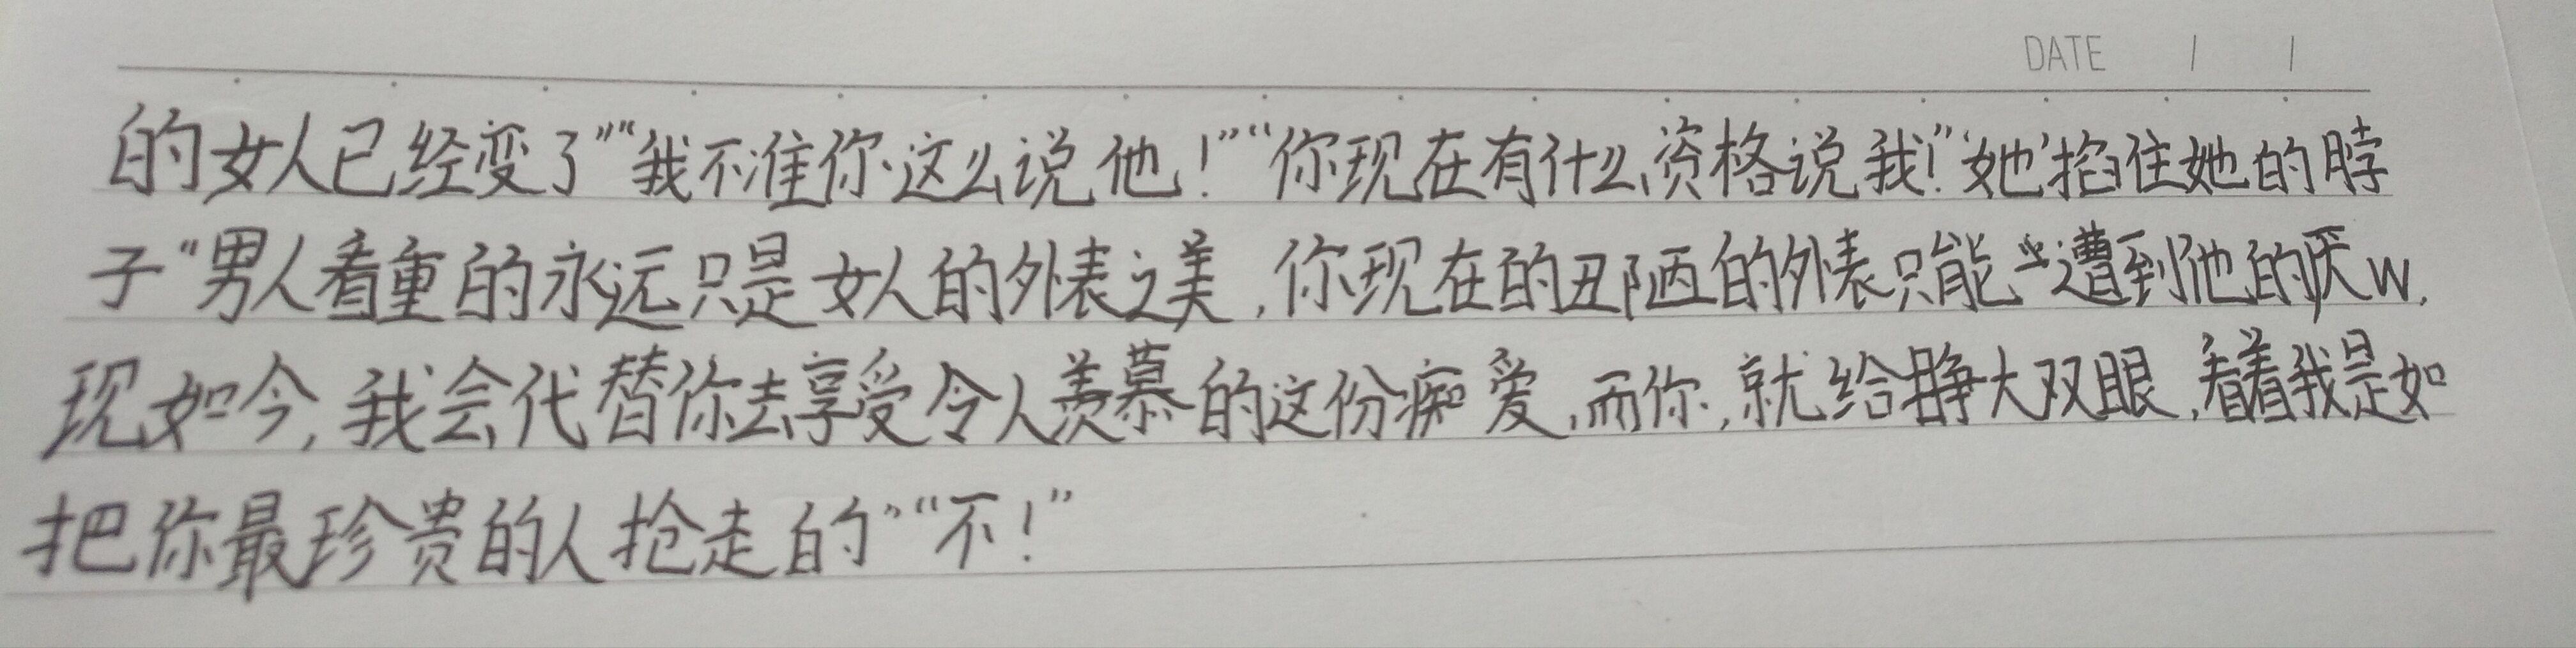 DATE / /
的女人已经变了”“我不准你这么说他！”“你现在有什么资格说我！”‘她’掐住她的脖
子“男人看重的永远只是女人的外表之美，你现在的丑陋的外表只能遭到他的厌w，
现如今，我会代替你去享受令人羡慕的这份痴爱，而你，就给挣大双眼，看着我是如
把你最珍贵的人抢走的”“不！”